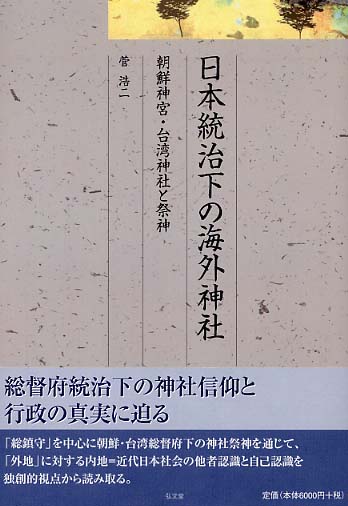 日本統治下の海外神社
朝鮮神宮・台湾神社と祭神
菅 浩二
総督府統治下の神社信仰と
行政の真実に迫る
「総鎮守」を中心に朝鮮・台湾総督府下の神社祭神を通じて、
「外地」に対する内地=近代日本社会の他者認識と自己認識を
独創的視点から読み取る。
弘文堂
定価(本体6000円+税)